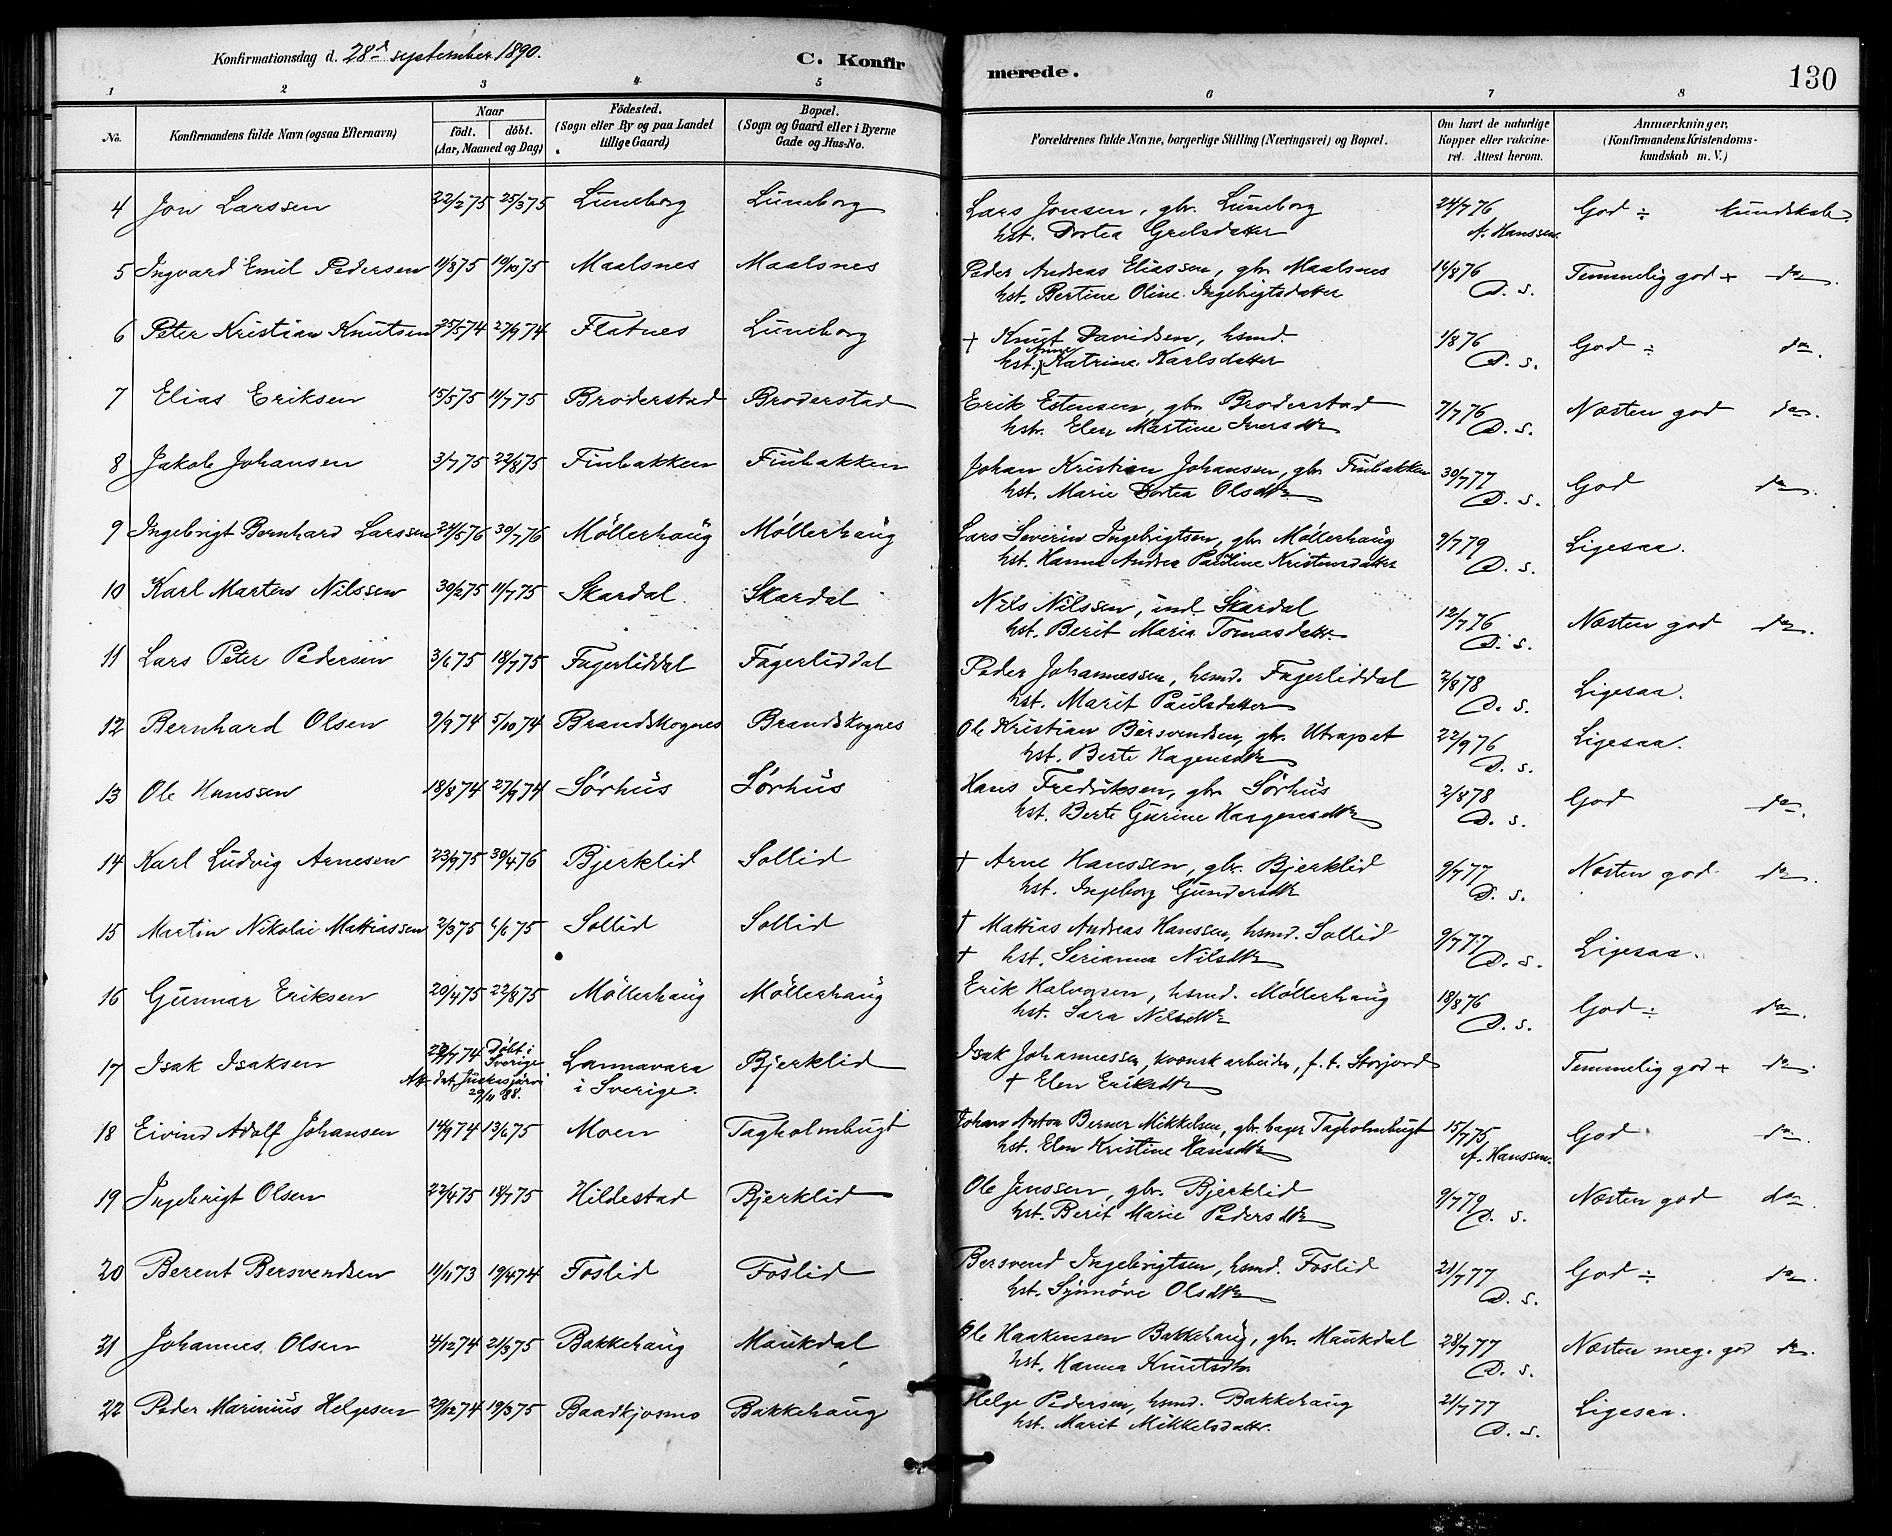 Konfirmationsdag d. 28de september 1890.
C. Konfirmerede.
130
1 2 3 4 5 6 7 8
No. Konfirmandens fulde Navn (ogsaa Efternavn) Naar født. døbt. (Aar, Maaned og Dag) Fødested. (Sogn eller By og paa Landet tillige Gaard) Bopæl. (Sogn og Gaard eller i Byerne Gade og Hus-No. Forældrenes fulde Navne, borgerlige Stilling (Næringsvei) og Bopæl. Om havt de naturlige Kopper eller vakcineret. Attest herom. Anmærkninger, (Konfirmandens Kristendomskundskab m. V.)
4 Jon Larssen 22/2 75 25/3 75 Luneborg Luneborg Lars Jonsen, gbr. Luneborg 24/7 76 God ÷ kundskab.
hst. Dortea Grelsdatter A. Hanssen
5 Ingvard Emil Pedersen 11/8 75 10/10 75 Maalsnes Maalsnes Peder Andreas Eliassen, gbr. Maalsnes 16/8 76 Temmelig god + do.
hst. Bertine Oline Ingebrigtsdatter D. s.
6 Peter Kristian Knutsen 25/5 74 27/9 74 Flatnes Luneborg † Knut Davidsen, hsmd. 1/8 76 God ÷ do.
hst. Anne Katrine Karlsdatter D. s.
7 Elias Eriksen 15/5 75 11/7 75 Broderstad Broderstad Erik Estensen, gbr. Broderstad 7/7 76 Næsten god do.
hstr. Elen Martine Iversdtr. D. s.
8 Jakob Johansen 3/7 75 22/8 75 Finbakken Finbakken Johan Kristian Johansen, gbr. Finbakken 30/7 77 God do.
hst. Marie Dortea Olsdtr. D. s.
9 Ingebrigt Bernhard Larssen 21/5 76 30/7 76 Møllerhaug Møllerhaug Lars Severin Ingebrigtsen, gbr. Møllerhaug 9/7 79 Ligesaa.
hst. Hanna Andrea Pauline Kristensdatter D. s.
10 Karl Marten Nilssen 11/7 75 Skardal Skardal Nils Nilssen, ind. Skardal 12/7 76 Næsten god do.
hst. Berit Maria Tomasdatr. D. s.
11 Lars Peter Pedersen 3/6 75 18/7 75 Fagerliddal Fagerliddal Peder Johannessen, hsmd. Fagerliddal 2/8 78 Ligesaa.
hst. Marit Paulsdatter D. s.
12 Bernhard Olsen 9/9 74 5/10 74 Brandskognes Brandskognes Ole Kristian Bersvendsen, gbr. Utrapet 22/9 76 Ligesaa.
hst. Berte Hagensdtr. D. s.
13 Ole Hanssen 18/8 74 27/9 74 Sørhus Sørhus Hans Fredriksen, gbr. Sørhus 2/8 78 God do.
hst. Berte Gurine Haagensdtr. D. s.
14 Karl Ludvig Arnesen 23/9 75 30/4 76 Bjerklid Sollid † Arne Hanssen, gbr. Bjerklid 9/7 77 Næsten god do.
hst. Ingeborg Gundersdtr. D. s.
15 Martin Nikolai Mattiassen 2/3 75 6/6 75 Sollid Sollid † Mattias Andreas Hanssen, hsmd. Sollid 9/7 77 Ligesaa.
† hst. Serianna Nilsdtr. D. s.
16 Gunnar Eriksen 20/4 75 22/8 75 Møllerhaug Møllerhaug Erik Halvorsen, hsmd. Møllerhaug 18/8 76 God ÷ do.
hst. Sara Nilsdtr. D. s.
17 Isak Isaksen 29/7 74 Døbt i Sverige Lannavara i Sverige. Bjerklid Isak Johannessen, kvænsk arbeider, f. t. Storjord Temmelig god + do.
Att. dat. Jukkasjärvi 29/11 88. † Elen Eriksdtr.
18 Eivind Adolf Johansen 14/9 74 13/6 75 Moen Tagholmbugt Johan Anton Berner Mikkelsen, gbr. bager Tagholmbugt 15/7 75 God do.
hst. Elen Kristine Hansdtr. A. Hanssen.
19 Ingebrigt Olsen 22/4 75 18/7 75 Hildestad Bjerklid Ole Jenssen, gbr. Bjerklid 9/7 79 Næsten god do.
hst. Berit Marie Pedersdtr. D. s.
20 Berent Bersvendsen 11/11 73 19/4 74 Foslid Foslid Bersvend Ingebrigtsen, hsmd. Foslid 21/7 77 God ÷ do.
hst. Synnøve Olsdtr. D. s.
21 Johannes Olsen 4/12 74 21/3 75 Bakkehaug Maukdal Ole Haakensen Bakkehaug, gbr. Maukdal 28/7 77 Næsten meg. god do.
hst. Hanna Knutsdtr. D. s.
22 Peder Marinius Helgesen 29/12 74 19/3 75 Baadkjosmo Bakkehaug Helge Pedersen, hsmd. Bakkehaug 21/7 77 Ligesaa.
hst. Marit Mikkelsdattr. D. s.